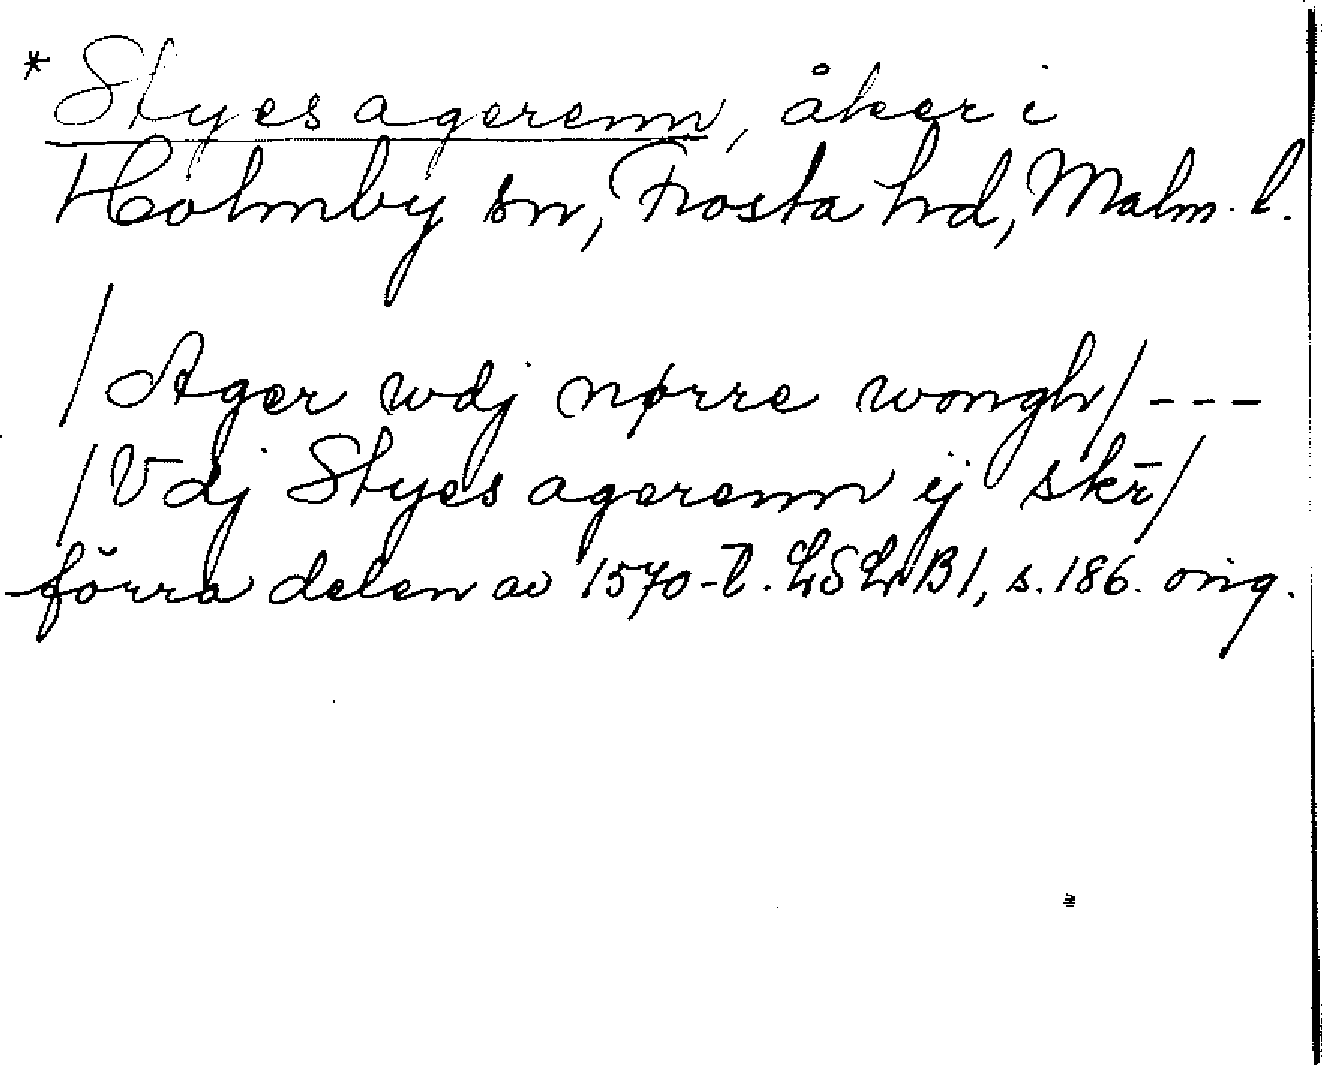 * Styes agerenn, åker i
Holmby sn, Frosta hd, Malm. l.
/Ager wdj nørre wongh/ ---
/Vdj Styes agerenn ij skr̄/
förra delen av 1570-t. LSLrB1, s. 186. orig.